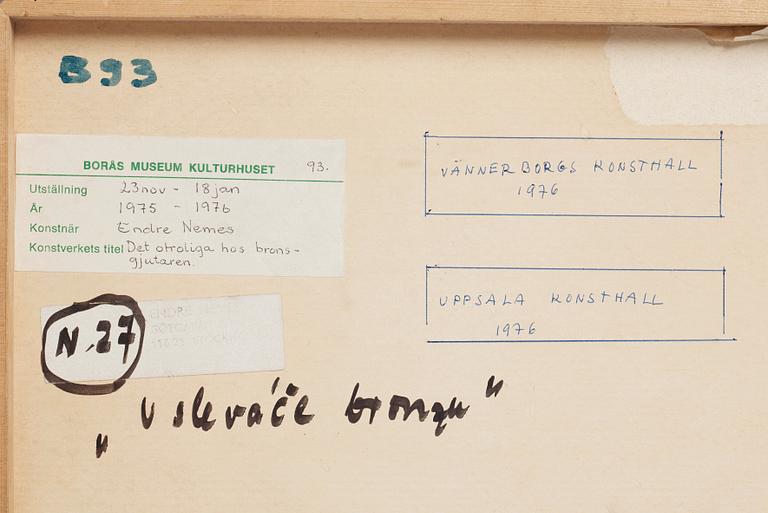 B93
BORÅS MUSEUM KULTURHUSET 93.
Utställning 23nov - 18jan
År 1975 - 1976
Konstnär Endre Nemes
Konstverkets titel Det otroliga hos brons-
gjutaren.
VÄNNERBORGS KONSTHALL
1976
UPPSALA KONSTHALL
1976
N.27
ENDRE
„U slevače bronzu"